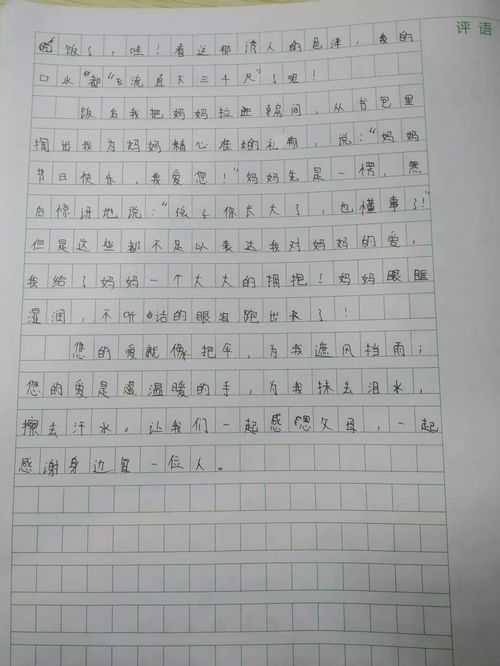 评语
饭了，哇！看这那诱人的色泽，我的
口水都“飞流直下三千尺”了呢！
饭后我把妈妈拉进房间，从书包里
掏出我为妈妈精心准的礼物，说：“妈妈
节日快乐，我爱您！”妈妈先是一愣，然
后惊讶地说：“孩子你长大了，也懂事了！”
但是这些都不足以表达我对妈妈的爱，
我给了妈妈一个大大的拥抱！妈妈眼眶
湿润，不听话的眼泪跑出来了！
您的爱就像把伞，为我遮风挡雨；
您的爱是温暖的手，为我抹去泪水，
擦去汗水。让我们一起感恩父母，一起
感谢身边每一位人。